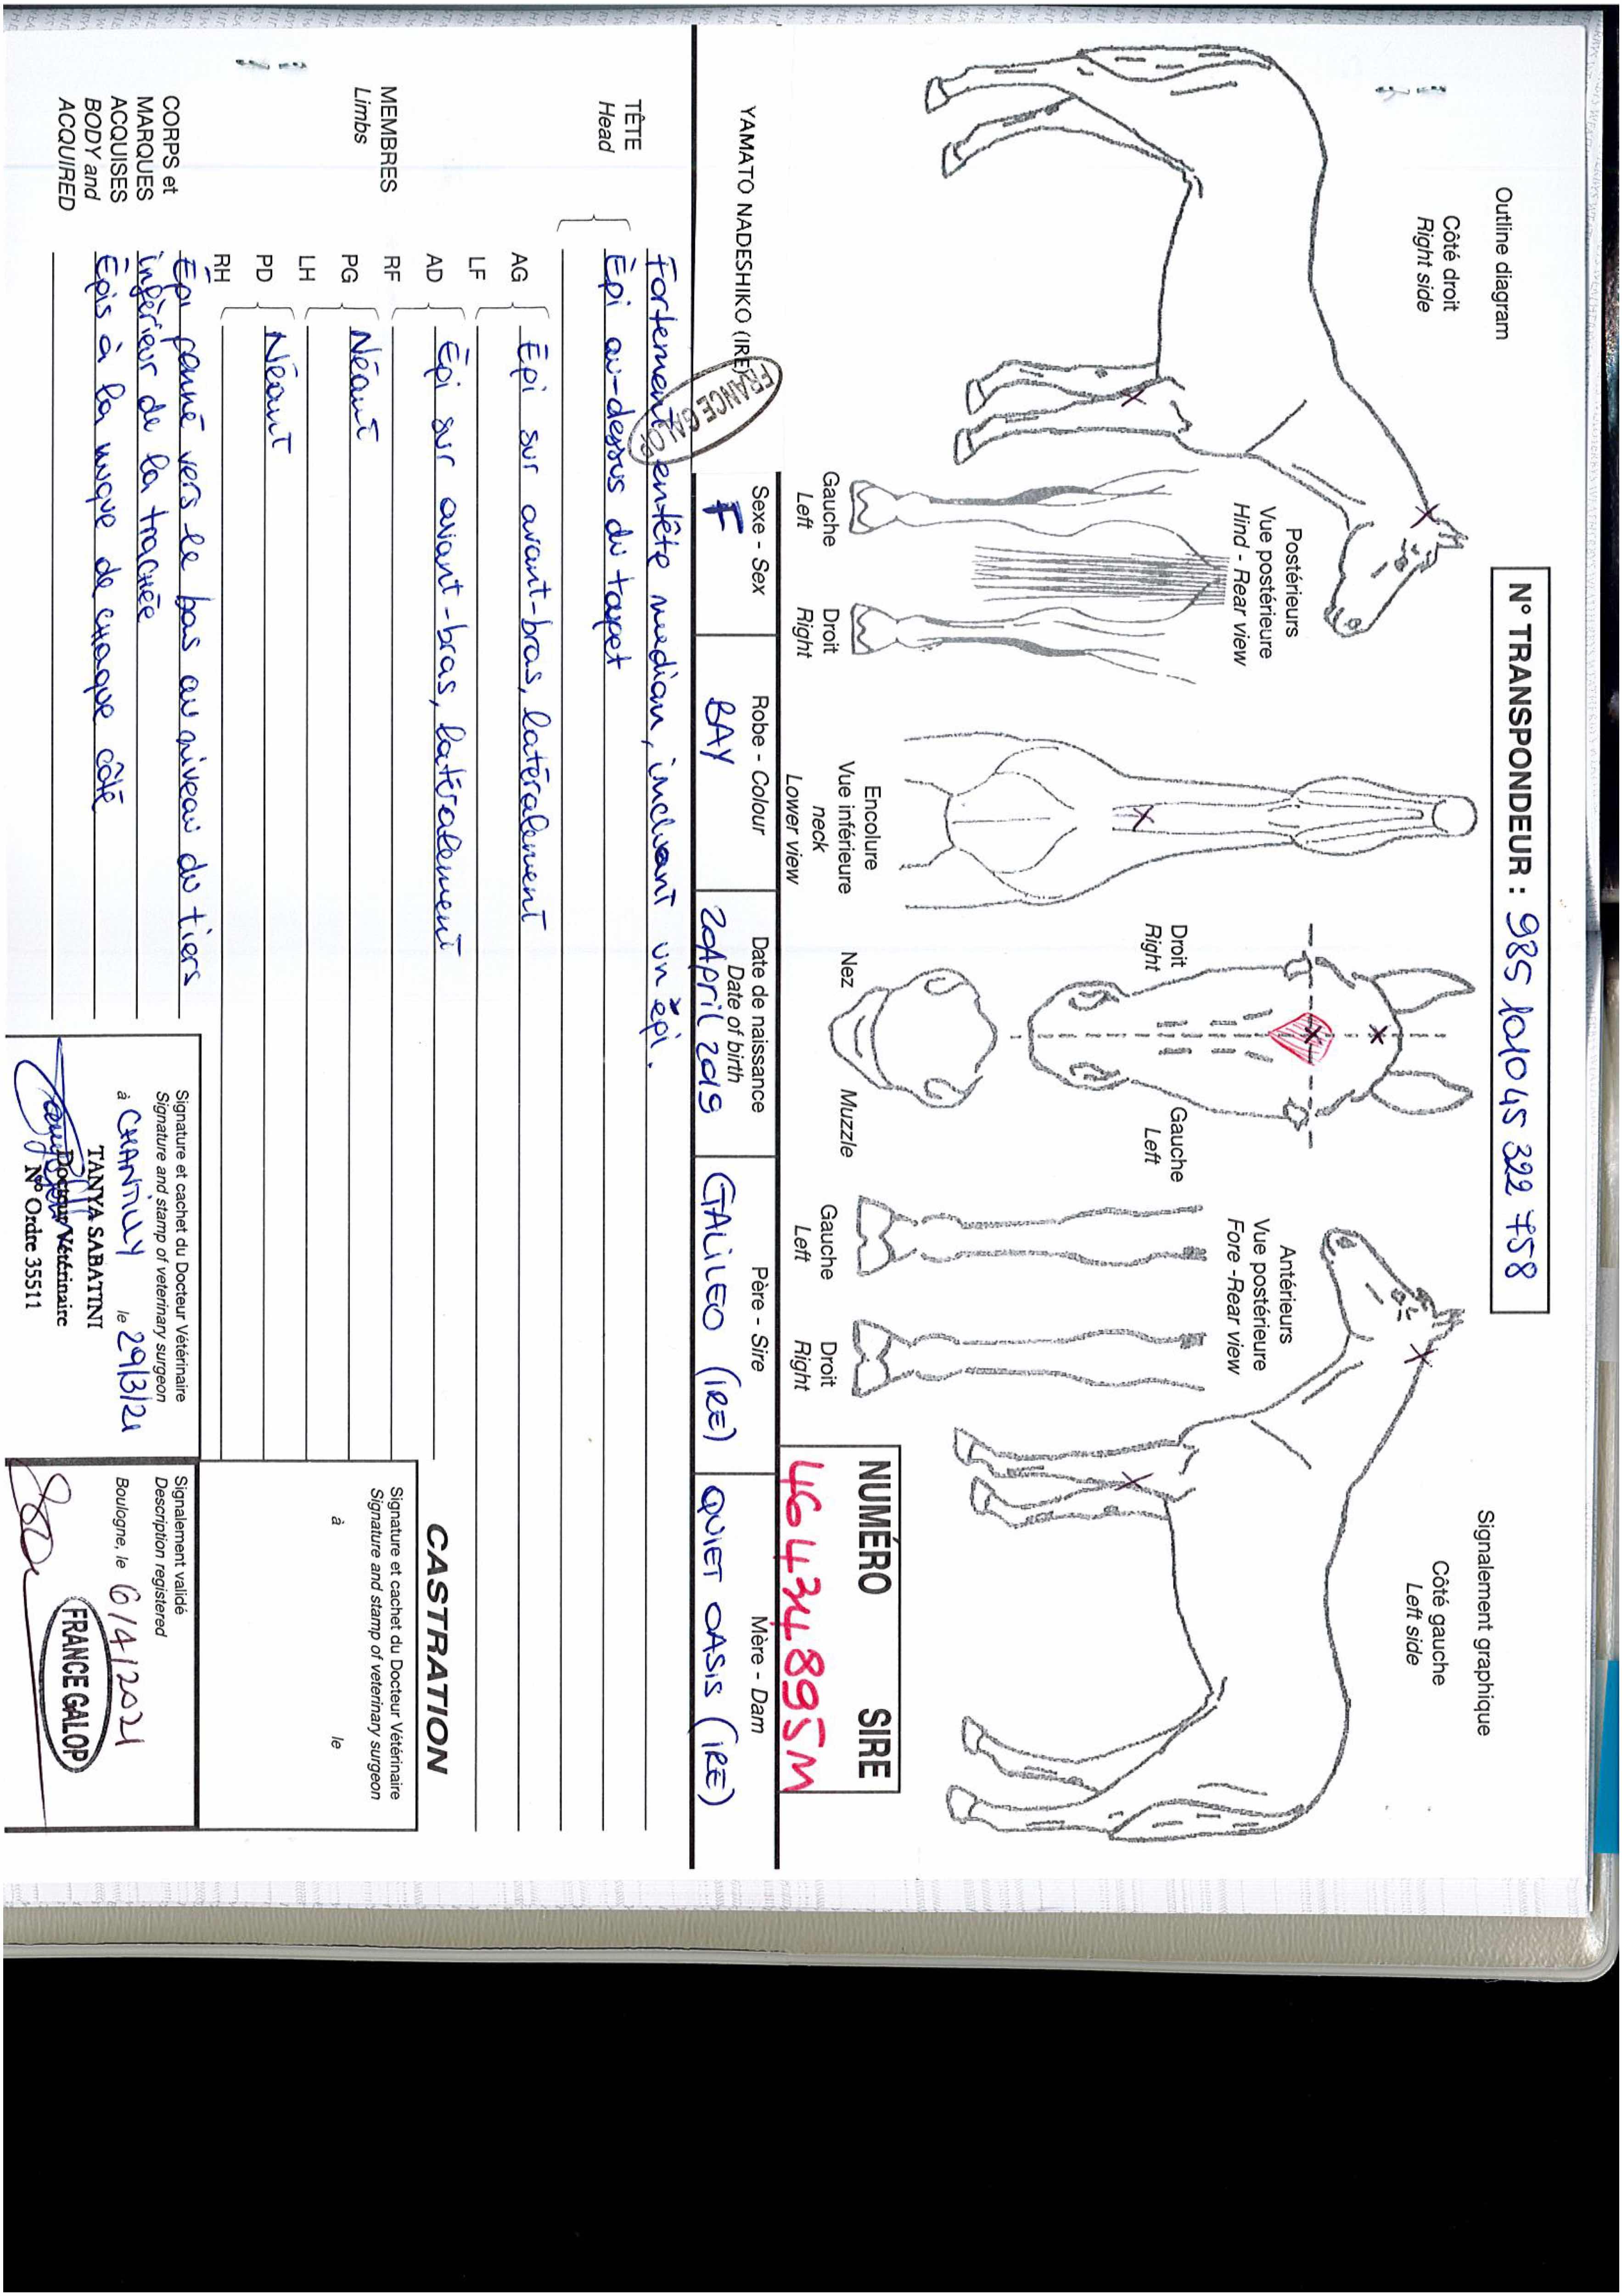 N° TRANSPONDEUR : 985 101045 322 758
Outline diagram
Signalement graphique
Côté droit
Right side
Côté gauche
Left side
Postérieurs
Vue postérieure
Hind - Rear view
Gauche
Left
Droit
Right
Encolure
Vue inférieure
neck
Lower view
Droit
Right
Gauche
Left
Nez
Muzzle
Antérieurs
Vue postérieure
Fore -Rear view
Gauche
Left
Droit
Right
NUMÉRO SIRE
46434895M
YAMATO NADESHIKO (IRE)
FRANCE GALOP
Sexe - Sex
F
Robe - Colour
BAY
Date de naissance
Date of birth
20 April 2019
Père - Sire
GALILEO (IRE)
Mère - Dam
QUIET OASIS (IRE)
TÊTE
Head
Fortement en tête médian, incluant un épi.
Epi au-dessus du toupet
MEMBRES
Limbs
AG
LF
Epi sur avant-bras, latéralement
AD
RF
Epi sur avant-bras, latéralement
PG
LH
Néant
PD
RH
Néant
CORPS et
MARQUES
ACQUISES
BODY and
ACQUIRED
Epi penné vers le bas au niveau du tiers
inférieur de la trachée
Epis à la nuque de chaque côté
CASTRATION
Signature et cachet du Docteur Vétérinaire
Signature and stamp of veterinary surgeon
à le
Signature et cachet du Docteur Vétérinaire
Signature and stamp of veterinary surgeon
à CHANTILLY le 29/3/21
TANYA SABATINI
Docteur Vétérinaire
N° Ordre 35511
Signalement validé
Description registered
Boulogne, le 6/4/2021
FRANCE GALOP